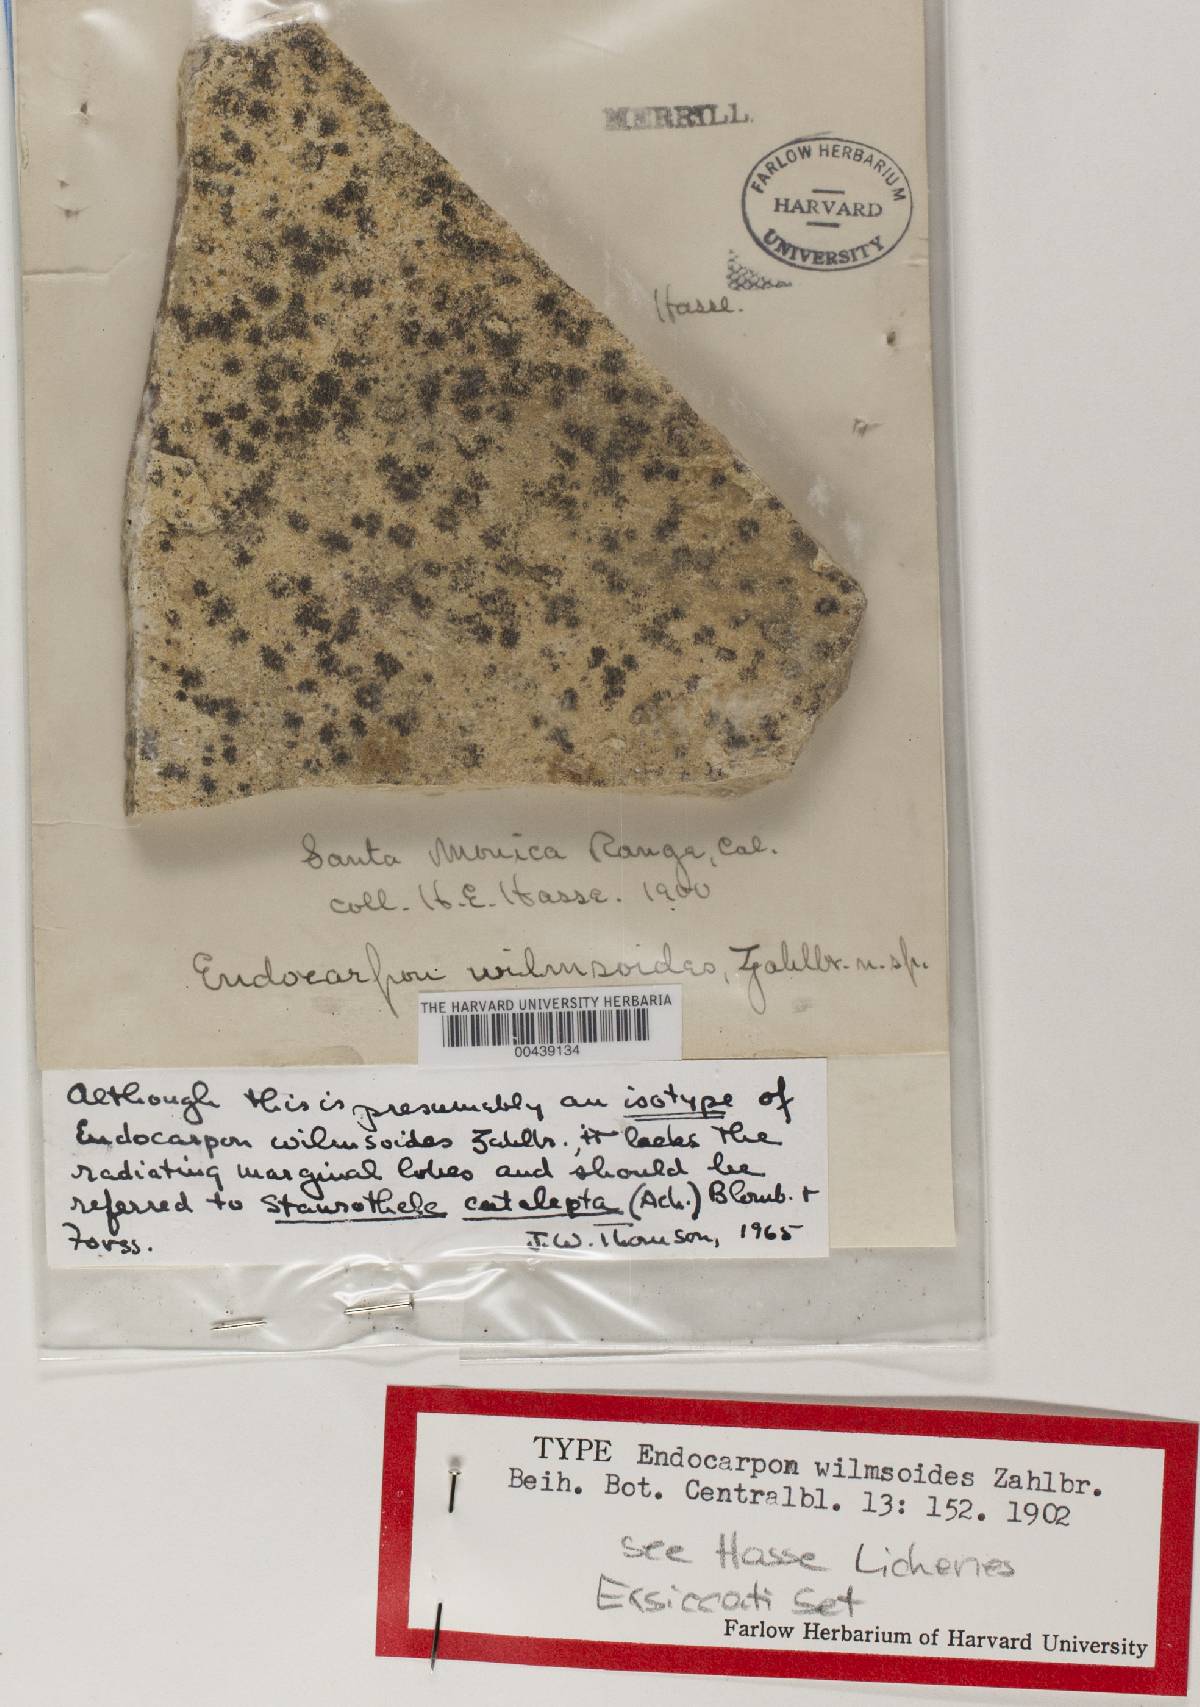 MERRILL.
FARLOW HERBARIUM
HARVARD
UNIVERSITY
Hasse.
Santa Monica Range, Cal.
coll. H.E. Hasse. 1900
Endocarpon wilmsoides, Zahlbr. n. sp.
THE HARVARD UNIVERSITY HERBARIA
00439134
Although this is presumably an isotype of
Endocarpon wilmsoides Zahlbr., it lacks the
radiating marginal lobes and should be
referred to Staurothele catalepta (Ach.) Blomb. +
Forss.
J.W. Thomson, 1965
TYPE Endocarpon wilmsoides Zahlbr.
Beih. Bot. Centralbl. 13: 152. 1902
see Hasse Lichenes
Exsiccati Set
Farlow Herbarium of Harvard University